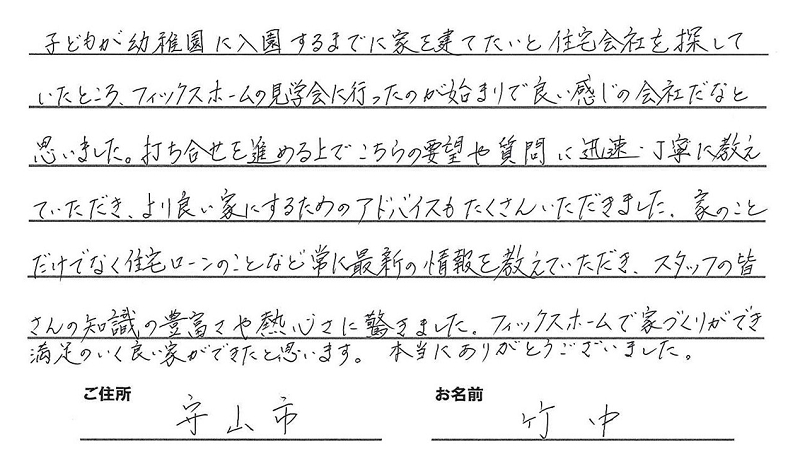 子どもが幼稚園に入園するまでに家を建てたいと住宅会社を探して
いたところ、フィックスホームの見学会に行ったのが始まりで良い感じの会社だなと
思いました。打ち合せを進める上でこちらの要望や質問に迅速・丁寧に教え
ていただき、より良い家にするためのアドバイスもたくさんいただきました。家のこと
だけでなく住宅ローンのことなど常に最新の情報を教えていただき、スタッフの皆
さんの知識の豊富さや熱心さに驚きました。フィックスホームで家づくりができ
満足のいく良い家ができたと思います。本当にありがとうございました。
ご住所 守山市 お名前 竹中